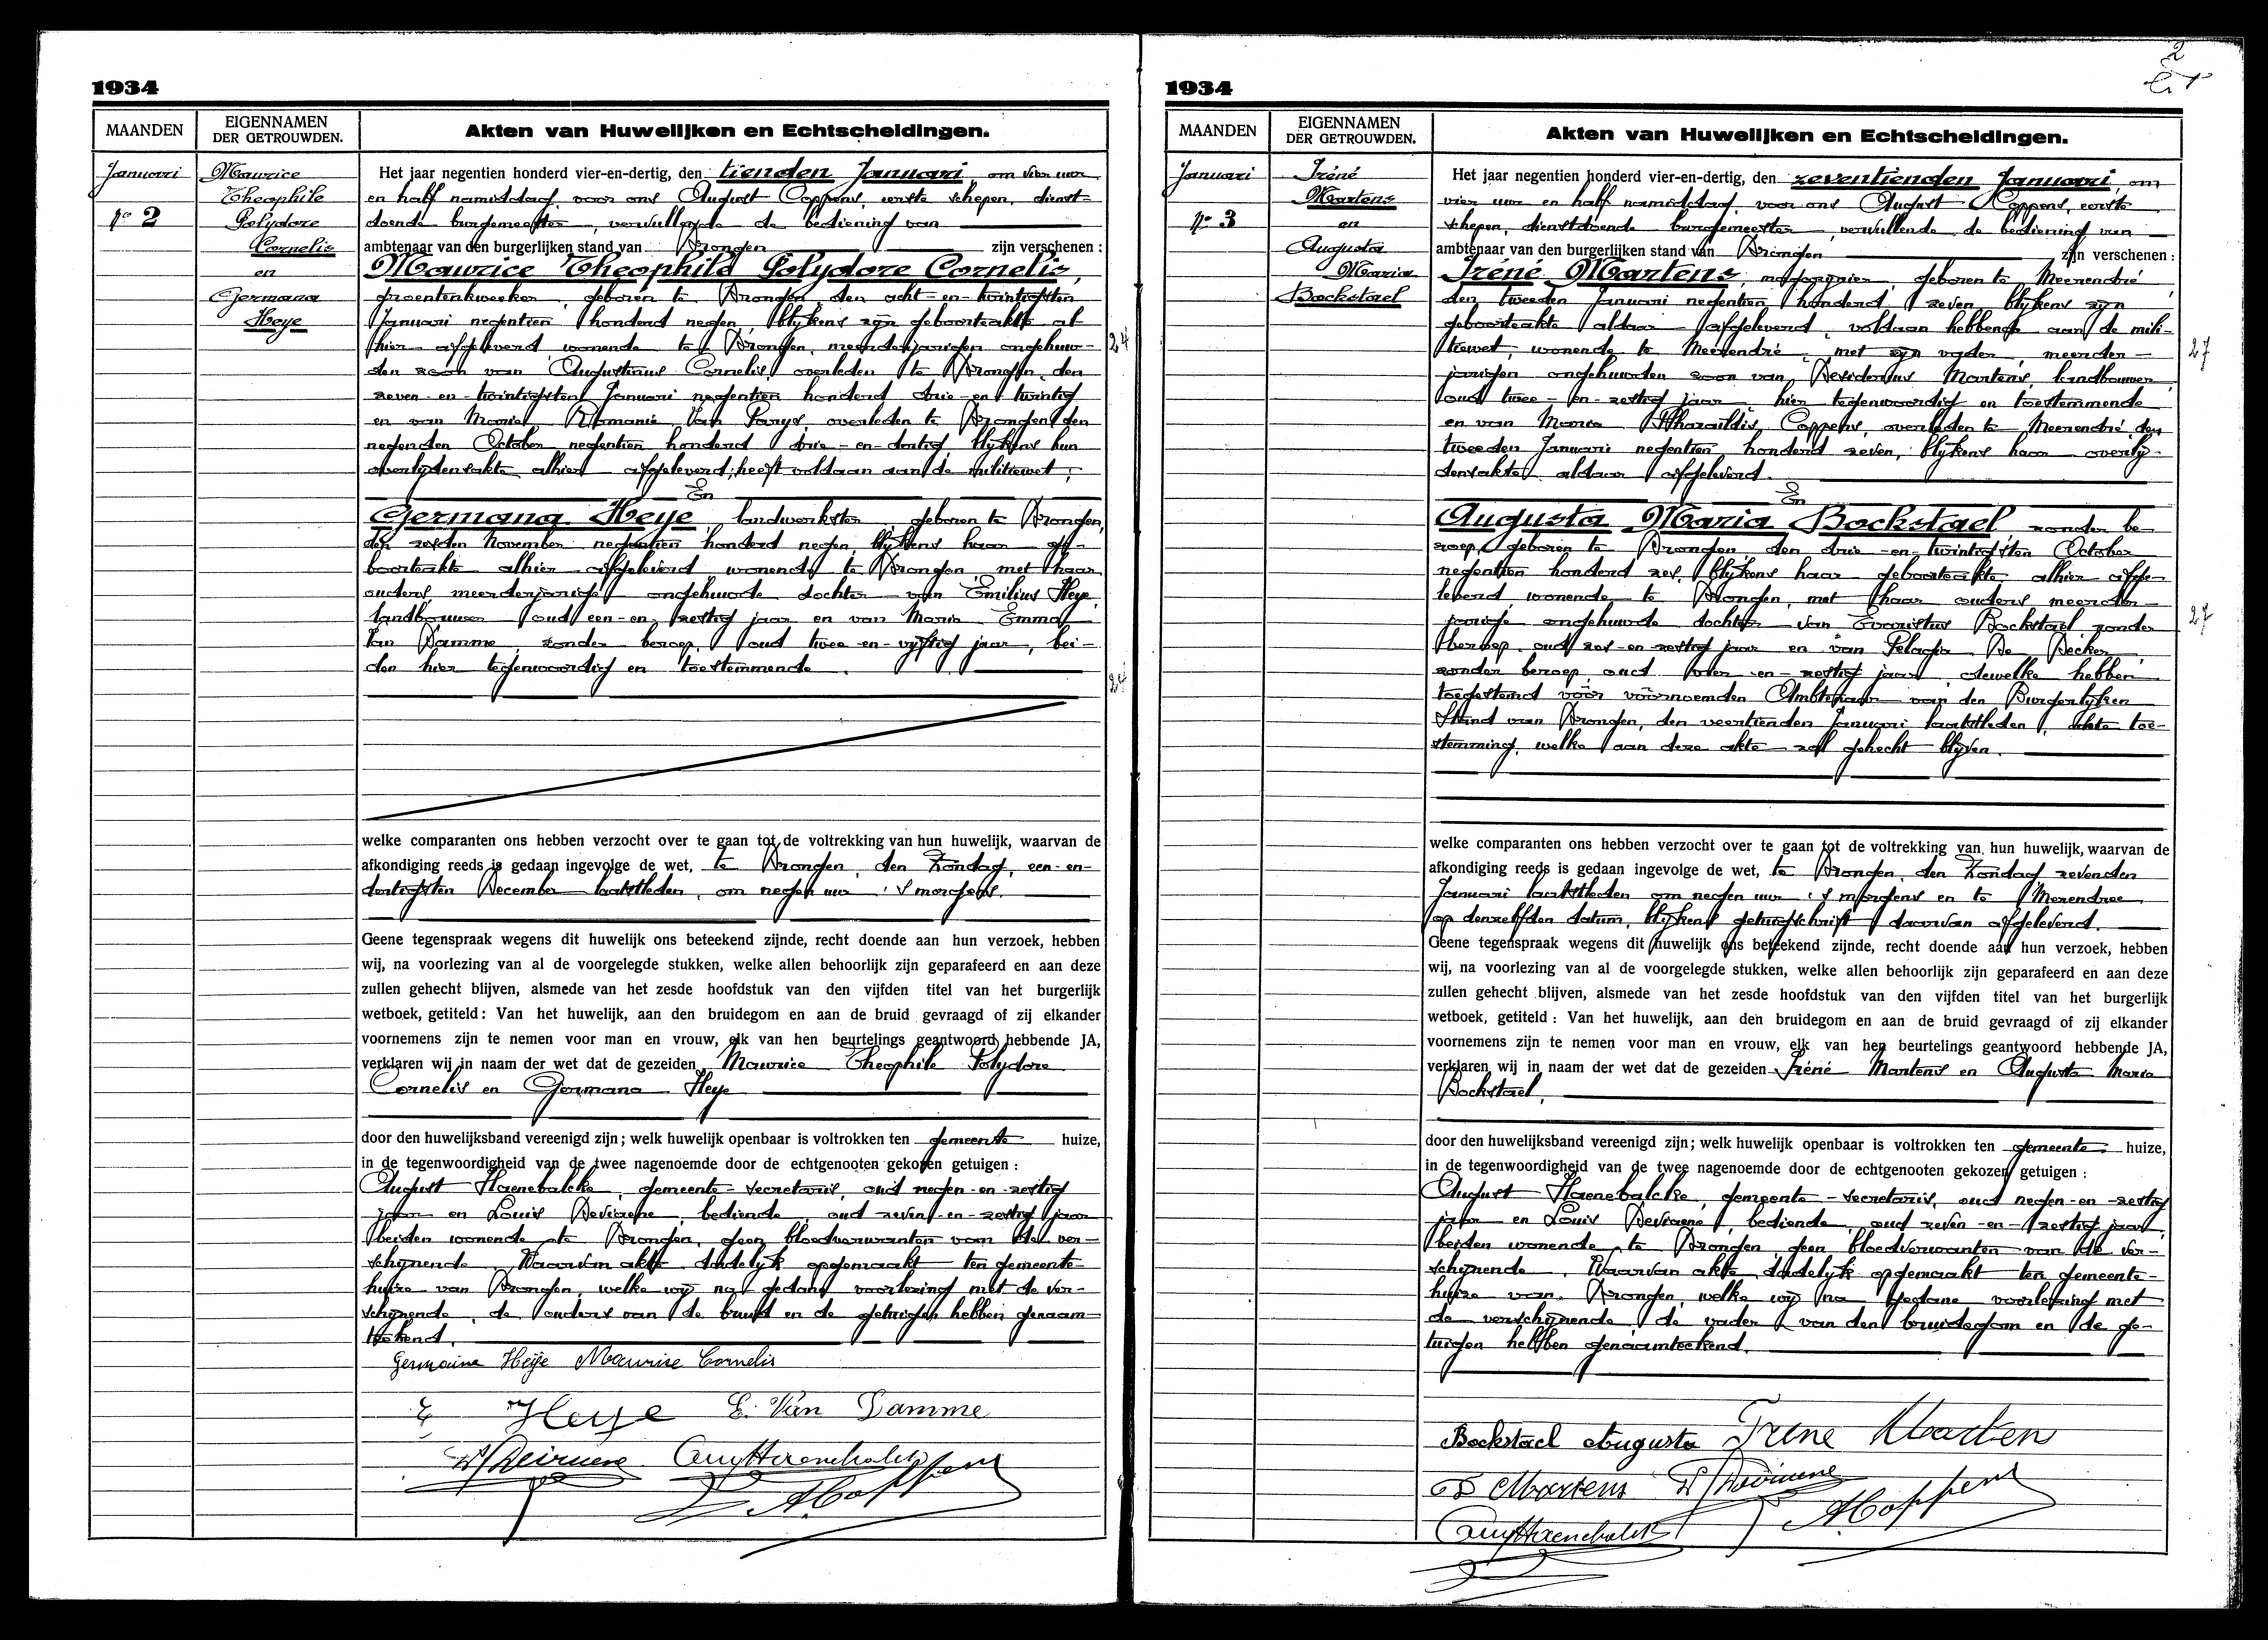 1934
MAANDEN
EIGENNAMEN
DER GETROUWDEN.
Akten van Huwelijken en Echtscheidingen.
Januari
No 2
Maurice
Theophile
Polydore
Cornelis
en
Germana
Heye
Het jaar negentien honderd vier-en-dertig, den tienden Januari, om vier uur
en half namiddag, voor ons August Coppens, eerste schepen, dienst-
doende burgemeester, vervullende de bediening van
ambtenaar van den burgerlijken stand van Drongen zijn verschenen :
Maurice Theophile Polydore Cornelis,
groentenkweeker, geboren te Drongen, den acht-en-twintigsten
Januari negentien honderd negen, blijkens zijn geboorteakte al-
hier afgeleverd wonende te Drongen, meerderjarigen ongehuw-
24
den zoon van Augustinus Cornelis, overleden te Drongen den
zeven-en-twintigsten Januari negentien honderd drie-en-twintig
en van Maria Romanie Van Parys, overleden te Drongen den
negenden October negentien honderd drie-en-dertig, blijkens hun
overlijdensakte alhier afgeleverd; heeft voldaan aan de militiewet;
En
Germana Heye, landwerkster, geboren te Drongen,
den zesden November negentien honderd negen, blijkens haar ge-
boorteakte alhier afgeleverd wonende te Drongen, met haar
ouders, meerderjarige ongehuwde dochter van Emilius Heye,
landbouwer, oud een-en-zestig jaar en van Maria Emma
Van Damme, zonder beroep, oud twee-en-vijftig jaar, bei-
den hier tegenwoordig en toestemmende.
24
welke comparanten ons hebben verzocht over te gaan tot de voltrekking van hun huwelijk, waarvan de
afkondiging reeds is gedaan ingevolge de wet, te Drongen, den Zondag, een-en-
dertigsten December laatstleden, om negen uur 's morgens.
Geene tegenspraak wegens dit huwelijk ons beteekend zijnde, recht doende aan hun verzoek, hebben
wij, na voorlezing van al de voorgelegde stukken, welke allen behoorlijk zijn geparafeerd en aan deze
zullen gehecht blijven, alsmede van het zesde hoofdstuk van den vijfden titel van het burgerlijk
wetboek, getiteld : Van het huwelijk, aan den bruidegom en aan de bruid gevraagd of zij elkander
voornemens zijn te nemen voor man en vrouw, elk van hen beurtelings geantwoord hebbende JA,
verklaren wij in naam der wet dat de gezeiden Maurice Theophile Polydore
Cornelis en Germana Heye
door den huwelijksband vereenigd zijn; welk huwelijk openbaar is voltrokken ten gemeente huize,
in de tegenwoordigheid van de twee nagenoemde door de echtgenooten gekozen getuigen :
August Haenebalcke, gemeente-secretaris, oud negen-en-zestig
jaar en Louis Deviaene, bediende, oud zeven-en-zestig jaar
beiden wonende te Drongen, geen bloedverwanten van de ver-
schijnende. Waarvan akte dadelijk opgemaakt ten gemeente-
huize van Drongen, welke wij na gedane voorlezing met de ver-
schijnende, de ouders van de bruid en de getuigen hebben genaam-
teekend.
Germaine Heye Maurice Cornelis
E Heye E. Van Damme
ACoppens
1934
2
MAANDEN
EIGENNAMEN
DER GETROUWDEN.
Akten van Huwelijken en Echtscheidingen.
Januari
No 3
Iréné
Martens
en
Augusta
Maria
Bockstael
Het jaar negentien honderd vier-en-dertig, den zeventienden Januari, om
vier uur en half namiddag, voor ons August Coppens, eerste
schepen, dienstdoende burgemeester, vervullende de bediening van
ambtenaar van den burgerlijken stand van Drongen zijn verschenen :
Iréné Martens, geboren te Meerendré,
den tweeden Januari negentien honderd zeven, blijkens zijn
geboorteakte aldaar afgeleverd, voldaan hebbende aan de mili-
tiewet, wonende te Meerendré, met zijn vader, meerder-
27
jarigen ongehuwden zoon van Desiderius Martens, landbouwer,
oud twee-en-zestig jaar, hier tegenwoordig en toestemmende
en van Maria Pharaildis Coppens, overleden te Meerendré den
tweeden Januari negentien honderd zeven, blijkens haar overlij-
densakte aldaar afgeleverd.
En
Augusta Maria Bockstael zonder be-
roep, geboren te Drongen, den drie-en-twintigsten October
negentien honderd zes, blijkens haar geboorteakte alhier afge-
leverd wonende te Drongen, met haar ouders meerder-
jarige ongehuwde dochter van Evaristus Bockstael, zonder
27
beroep, oud zes-en-zestig jaar en van Pelagia De Decker,
zonder beroep, oud vier-en-zestig jaar, dewelke hebben
toegestemd vóór voornoemden Ambtenaar van den Burgerlijken
Stand van Drongen, den veertienden Januari laatstleden, akte toe-
stemming, welke aan deze akte zal gehecht blijven.
welke comparanten ons hebben verzocht over te gaan tot de voltrekking van hun huwelijk, waarvan de
afkondiging reeds is gedaan ingevolge de wet, te Drongen, den Zondag zevenden
Januari laatstleden om negen uur 's morgens en te Merendree
op denzelfden datum, blijkens getuigschrift daarvan afgeleverd.
Geene tegenspraak wegens dit huwelijk ons beteekend zijnde, recht doende aan hun verzoek, hebben
wij, na voorlezing van al de voorgelegde stukken, welke allen behoorlijk zijn geparafeerd en aan deze
zullen gehecht blijven, alsmede van het zesde hoofdstuk van den vijfden titel van het burgerlijk
wetboek, getiteld : Van het huwelijk, aan den bruidegom en aan de bruid gevraagd of zij elkander
voornemens zijn te nemen voor man en vrouw, elk van hen beurtelings geantwoord hebbende JA,
verklaren wij in naam der wet dat de gezeiden Iréné Martens en Augusta Maria
Bockstael,
door den huwelijksband vereenigd zijn; welk huwelijk openbaar is voltrokken ten gemeente huize,
in de tegenwoordigheid van de twee nagenoemde door de echtgenooten gekozen getuigen :
August Haenebalcke, gemeente-secretaris, oud negen-en-zestig
jaar en Louis Deviaene, bediende, oud zeven-en-zestig jaar,
beiden wonende te Drongen, geen bloedverwanten van de ver-
schijnende. Waarvan akte dadelijk opgemaakt ten gemeente-
huize van Drongen, welke wij na gedane voorlezing met
de verschijnende, de vader van den bruidegom en de ge-
tuigen hebben genaamteekend.
Bockstael Augusta Irene Marten
D Martens
ACoppens